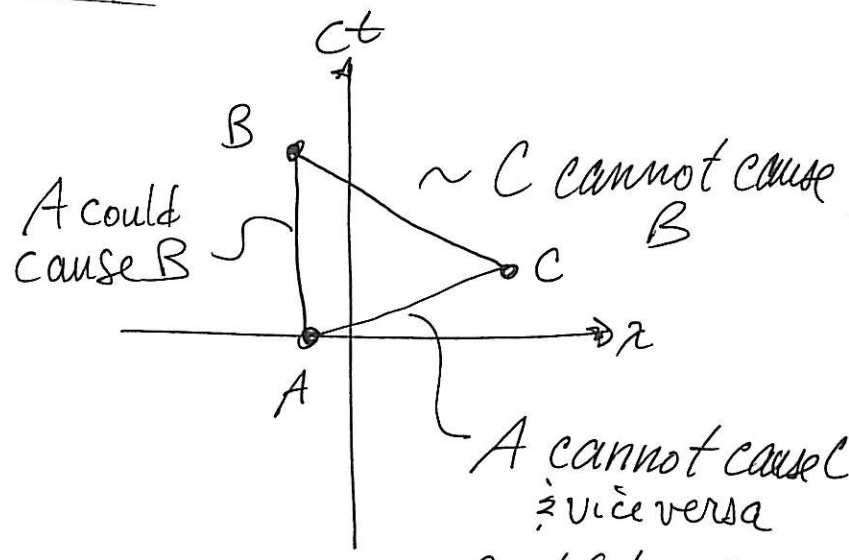 ct
B
~ C cannot cause
B
A could
cause B
C
x
A
A cannot cause C
& vice versa